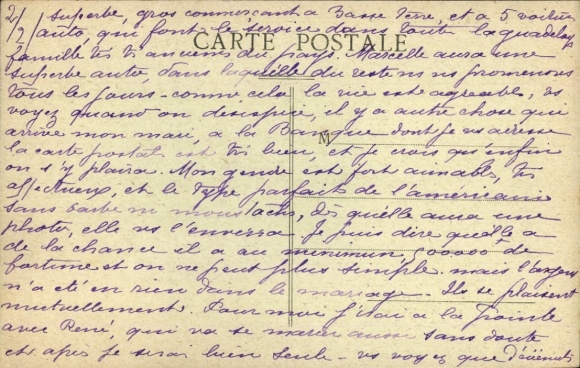 2/ superbe, gros commercant a Basse Terre, et a 5 voitures
2/ auto, qui font le service dans toute la guadeloupe
CARTE POSTALE
famille très ancienne du pays. Marcelle aura une
superbe auto, dans laquelle du reste ns ns promenons
tous les jours - comme cela la vie est agréable, vs
voyez quand on desespère, il y a autre chose qui
arrive mon mari, a la Banque dont je vs adresse
M
la carte postale est très bien, et je crois qu'enfin
on s'y plaira. Mon gendre est fort aimable, très
affectueux, et le type parfait de l'américain
sans barbe ni moustache, Dès qu'elle aura une
photo, elle vs l'enverra je puis dire qu'elle a
de la chance il a au minimun, 900000 de
fortune et on ne peut plus simple. mais l'argent
n'a été en rien dans le mariage. Ils se plaisent
mutuellement. Pour moi j'étai a la Pointe
avec René, qui va se marier aussi sans doute
et après je serai bien seule - vs voyez que d'événements